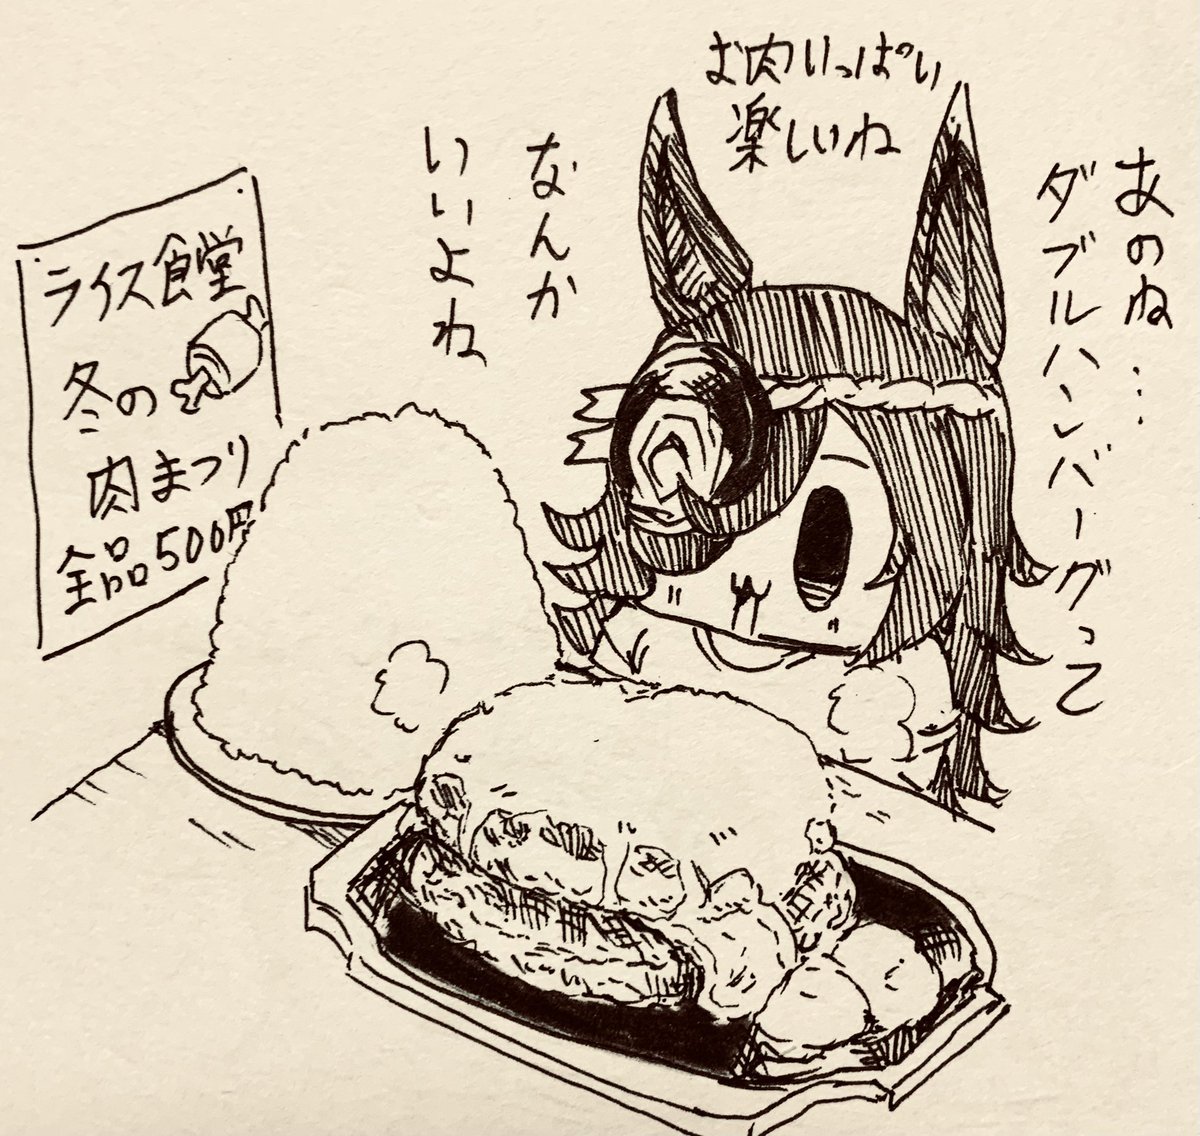 あのね…
ダブルハンバーグって
お肉いっぱい
楽しいね
なんか
いいよね
ライス食堂
冬の
肉まつり
全品500円